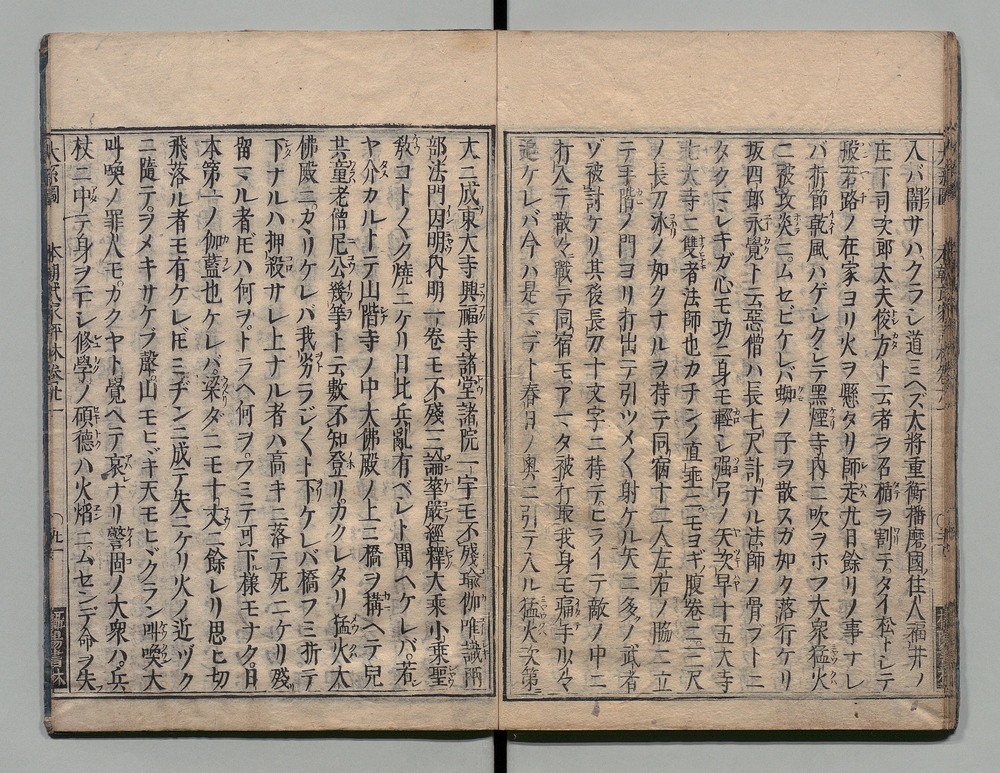 入バ闇サハクラシ道ミヘズ大將重衡播磨國住人福井ノ
庄下司次郎太夫俊方ト云者ヲ召楯ヲ割テタイ松トシテ
般若路ノ在家ヨリ火ヲ縣タリ師走九日餘リノ事ナレ
バ折節乾風ハゲシクシテ黑煙寺內ニ吹ヲホフ大衆猛火
ニ被攻炎ニムセビケレバ蜘ノ子ヲ散スガ如ク落行ケリ
坂四郎永覺ト云惡僧ハ長七尺計ナル法師ノ骨フトニ
タクマシキガ心モ功ニ身モ輕シ强弓ノ矢次早十五大寺
七大寺ニ雙者法師也カチンノ直垂ニモヨギノ腹卷ニ三尺
ノ長刀氷ノ如クナルヲ持テ同宿十二人左右ノ脇ニ立
テ手隨ノ門ヨリ打出テ引ツメ〱射ケル矢ニ多ノ武者
ゾ被討ケリ其後長刀十文字ニ持テヒライテ敵ノ中ニ
打入テ散々ニ戰テ同宿モアマタ被打取我身モ痛手少々
追ケレバ今ハ是マデト春日ノ奧ニ引テ入ル猛火次第ニ
大ニ成東大寺興福寺諸堂諸院一宇モ不殘瑜伽唯識兩
部法門因明內明一卷モ不殘三論華嚴經釋大乘小乘聖
敎コト〱ク燒ニケリ日比兵亂有ベシト聞ヘケレバ若
ヤ介カルトテ山階寺ノ中大佛殿ノ上ニ橋ヲ構ヘテ兒
共童老僧尼公幾等ト云數不知登リカクレタリ猛火大
佛殿ニカヽリケレバ我劣ラジ〱ト下ケレバ橋フミ折テ
下ナルハ押殺サレ上ナル者ハ高キニ落テ死ニケリ殘
留マル者𪜈ハ何ヲトラヘ何ヲフミテ可下樣モナク日
本第一ノ伽藍也ケレバ梁ダニモ十丈ニ餘レリ思ヒ切
飛落ル者モ有ケレ𪜈ミヂンニ成テ失ニケリ火ノ近ヅク
ニ隨テヲメキサケブ聲山モヒヾキ天モヒヾクラン叫喚大
叫喚ノ罪人モカクヤト覺ヘテ哀ナリ警固ノ大衆ハ兵
杖ニ中テ身ヲ亡シ修學ノ碩德ハ火熖ニムセンデ命ヲ失
大系圖 本朝武家評林卷廿一 九一